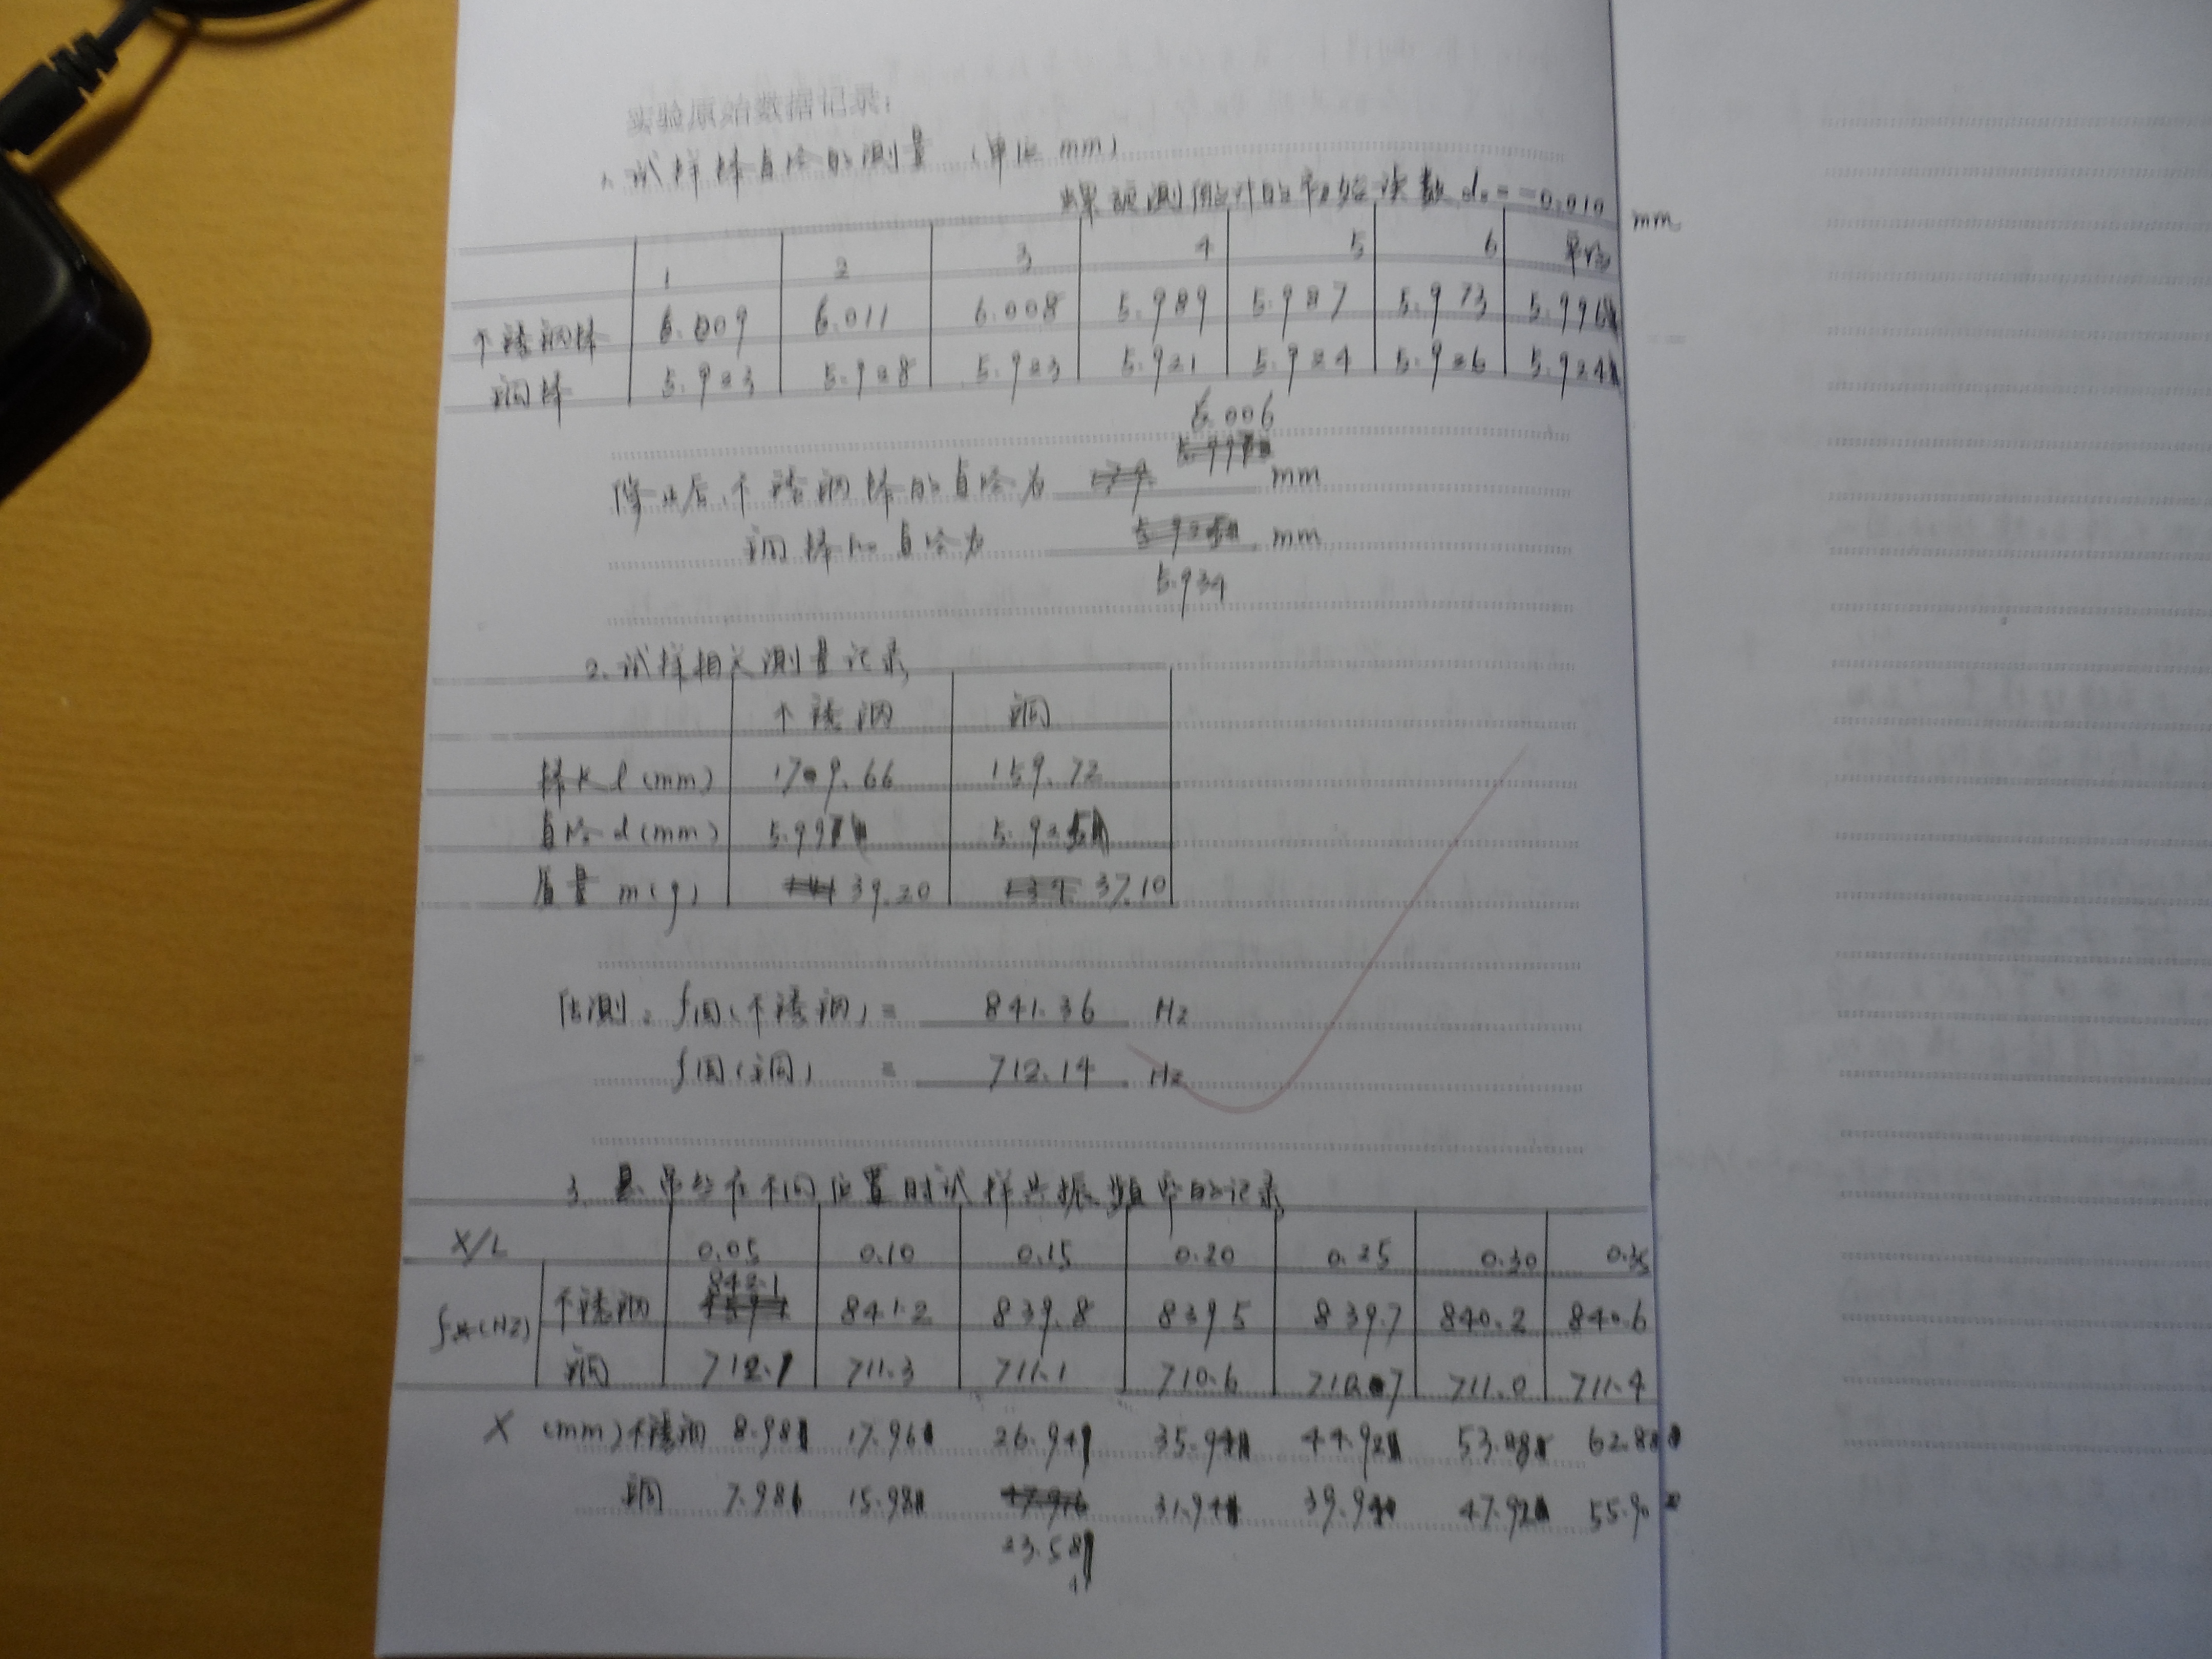 实验原始数据记录：
1、试样棒直径的测量 （单位 mm）
螺旋测微计的初始读数 d₀ = -0.010 mm
1 2 3 4 5 6 平均
不锈钢棒 6.009 6.011 6.008 5.989 5.987 5.973 5.996
铜棒 5.923 5.928 5.923 5.921 5.924 5.926 5.924
6.006
修正后，不锈钢棒的直径为 mm
铜棒的直径为 mm
5.934
2、试样相关测量记录
不锈钢 铜
棒长 l (mm) 179.66 159.72
直径 d (mm) 5.99 5.92
质量 m (g) 39.20 37.10
估测：f固（不锈钢）= 841.36 Hz
f固（铜） = 712.14 Hz
3、悬吊丝在不同位置时试样共振频率的记录
X/L 0.05 0.10 0.15 0.20 0.25 0.30 0.35
f共(Hz) 不锈钢 842.1 841.2 839.8 839.5 839.7 840.2 840.6
铜 712.1 711.3 711.1 710.6 710.7 711.0 711.4
X (mm) 不锈钢 8.98 17.96 26.94 35.94 44.92 53.98 62.88
铜 7.98 15.98 31.94 39.94 47.92 55.90
23.58